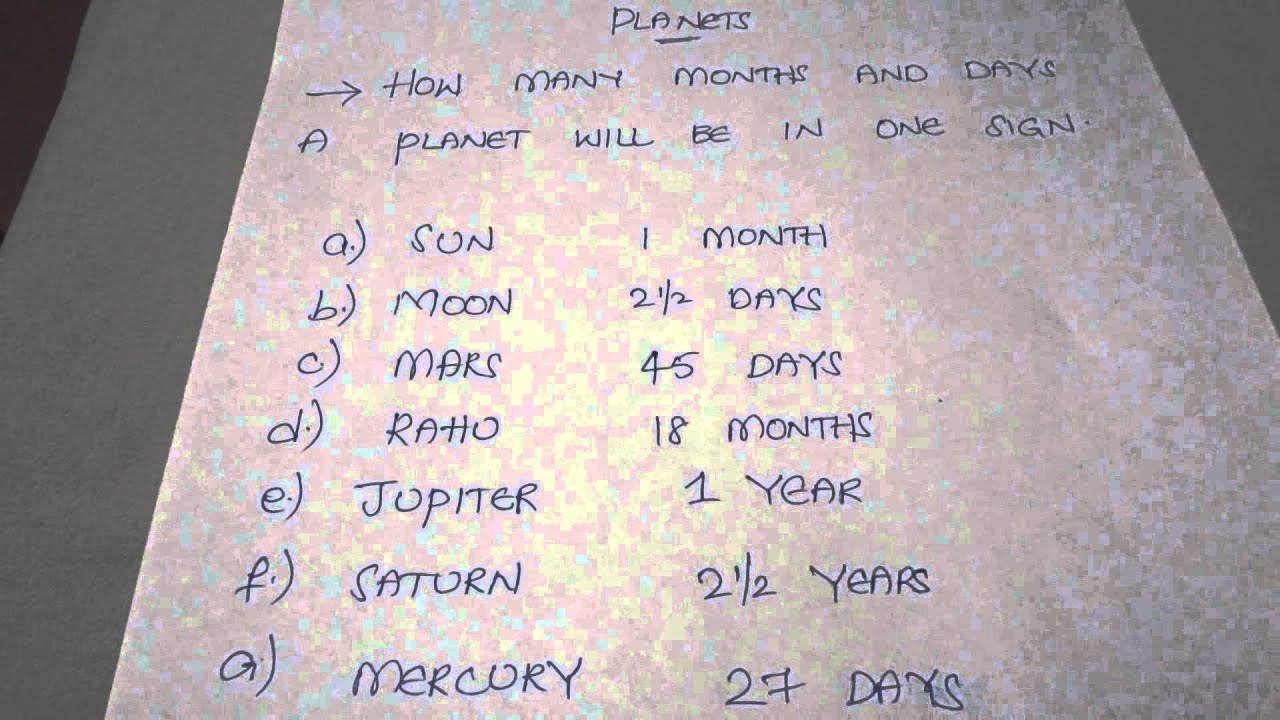 PLANETS
→ HOW MANY MONTHS AND DAYS
A PLANET WILL BE IN ONE SIGN.
a.) SUN 1 MONTH
b.) MOON 2 1/2 DAYS
c.) MARS 45 DAYS
d.) RAHU 18 MONTHS
e.) JUPITER 1 YEAR
f.) SATURN 2 1/2 YEARS
g.) MERCURY 27 DAYS